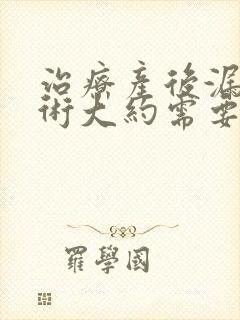 治療產後漏
術大約需要
羅學國